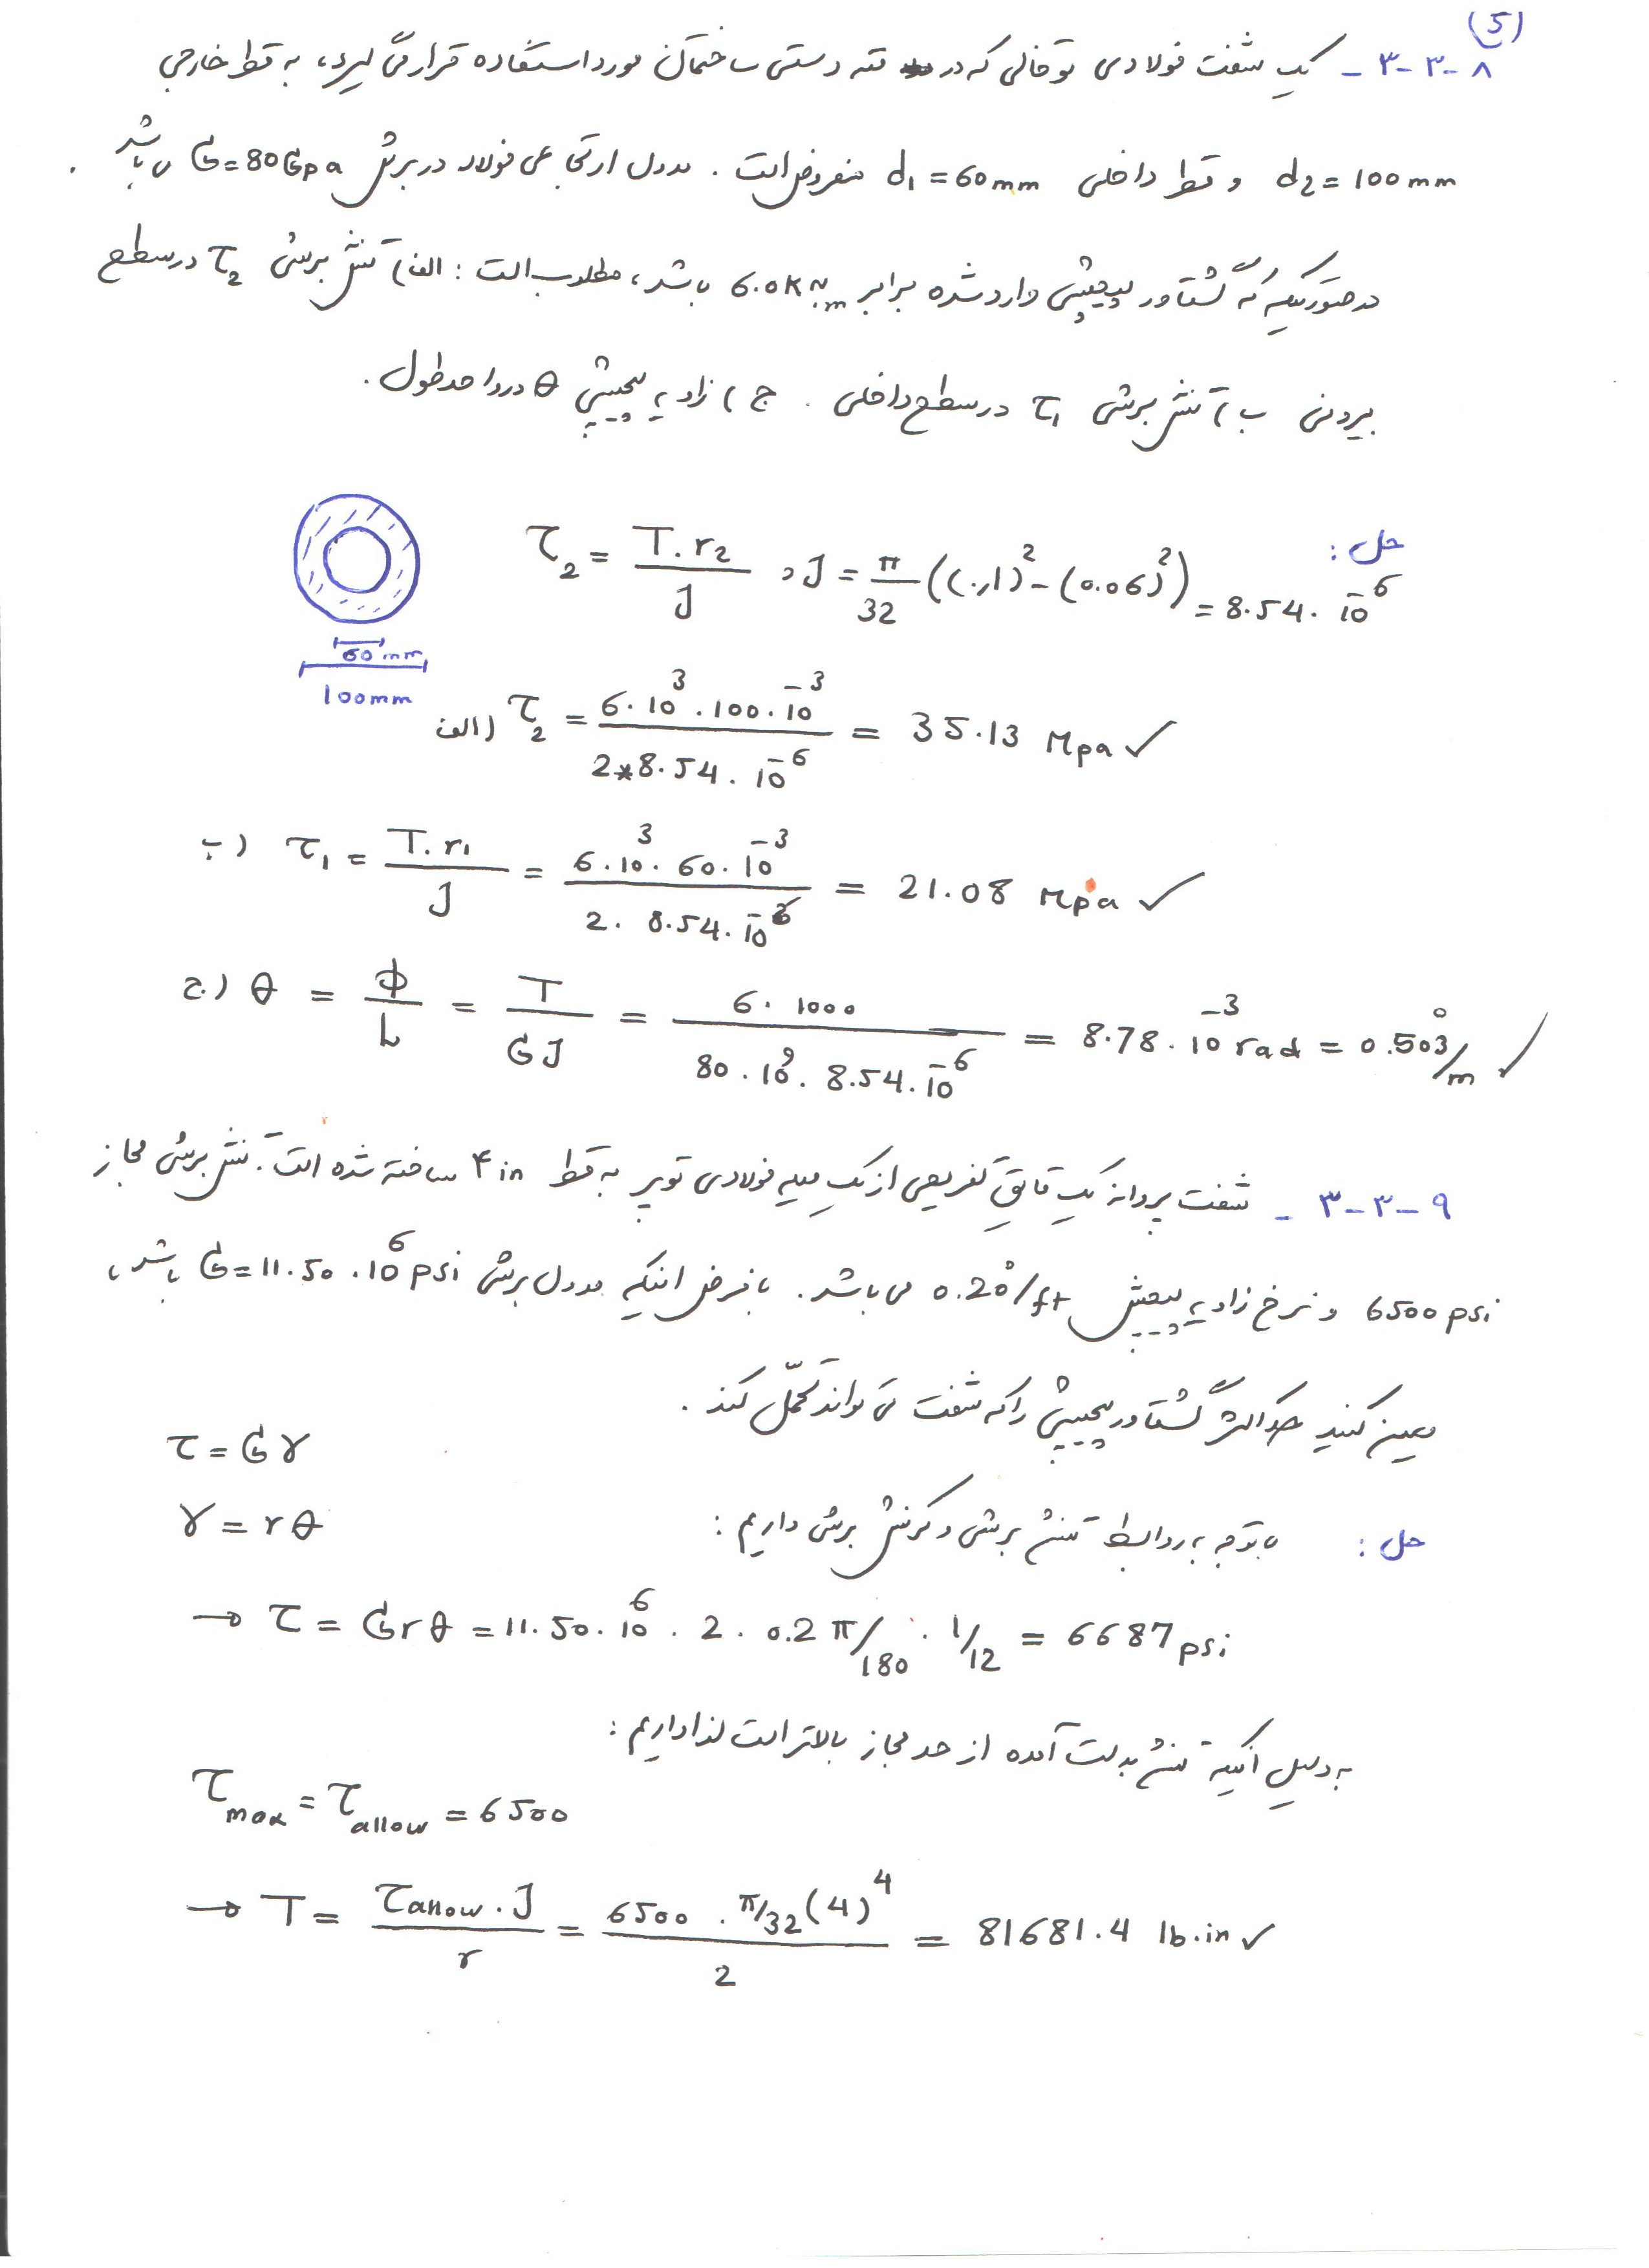 (5)
۳-۳-۸ - یک شفت فولادی توخالی که در مته دستی ساختمان مورد استفاده قرار می گیرد، به قطر خارجی
d2 = 100mm و قطر داخلی d1 = 60mm مفروض است. مدول ارتجاعی فولاد در برش G=80Gpa می باشد.
در صورتیکه گشتاور پیچشی وارد شده برابر 6.0KN.m باشد، مطلوب است: الف) تنش برشی τ2 در سطح
بیرونی ب) تنش برشی τ1 در سطح داخلی. ج) زاویه پیچش θ در واحد طول.
حل:
τ2 = T.r2 / J , J = π/32 ((0.1)^2 - (0.06)^2) = 8.54 . 10^-6
60 mm
100mm
الف) τ2 = 6.10^3 .100.10^-3 / 2*8.54.10^-6 = 35.13 Mpa ✓
ب) τ1 = T.r1 / J = 6.10^3. 60.10^-3 / 2. 8.54.10^-6 = 21.08 Mpa ✓
ج) θ = Φ/L = T/GJ = 6.1000 / 80.10^9. 8.54.10^-6 = 8.78.10^-3 rad = 0.503°/m ✓
۳-۳-۹ - شفت پروانه یک قایق تفریحی از یک میله فولادی توپر به قطر ۴in ساخته شده است. تنش برشی مجاز
6500psi و نرخ زاویه پیچش 0.20°/ft می باشد. با فرض اینکه مدول برشی G=11.50.10^6 psi باشد،
معین کنید حداکثر گشتاور پیچشی را که شفت می تواند تحمّل کند.
τ = Gγ
حل: با توجه به روابط تنش برشی و کرنش برشی داریم:
γ = rθ
→ τ = Grθ = 11.50.10^6 . 2 . 0.2 π/180 . 1/12 = 6687 psi
به دلیل آنکه تنش بدست آمده از حد مجاز بالاتر است لذا داریم:
τmax = τallow = 6500
→ T = τallow.J / r = 6500 . π/32 (4)^4 / 2 = 81681.4 lb.in ✓